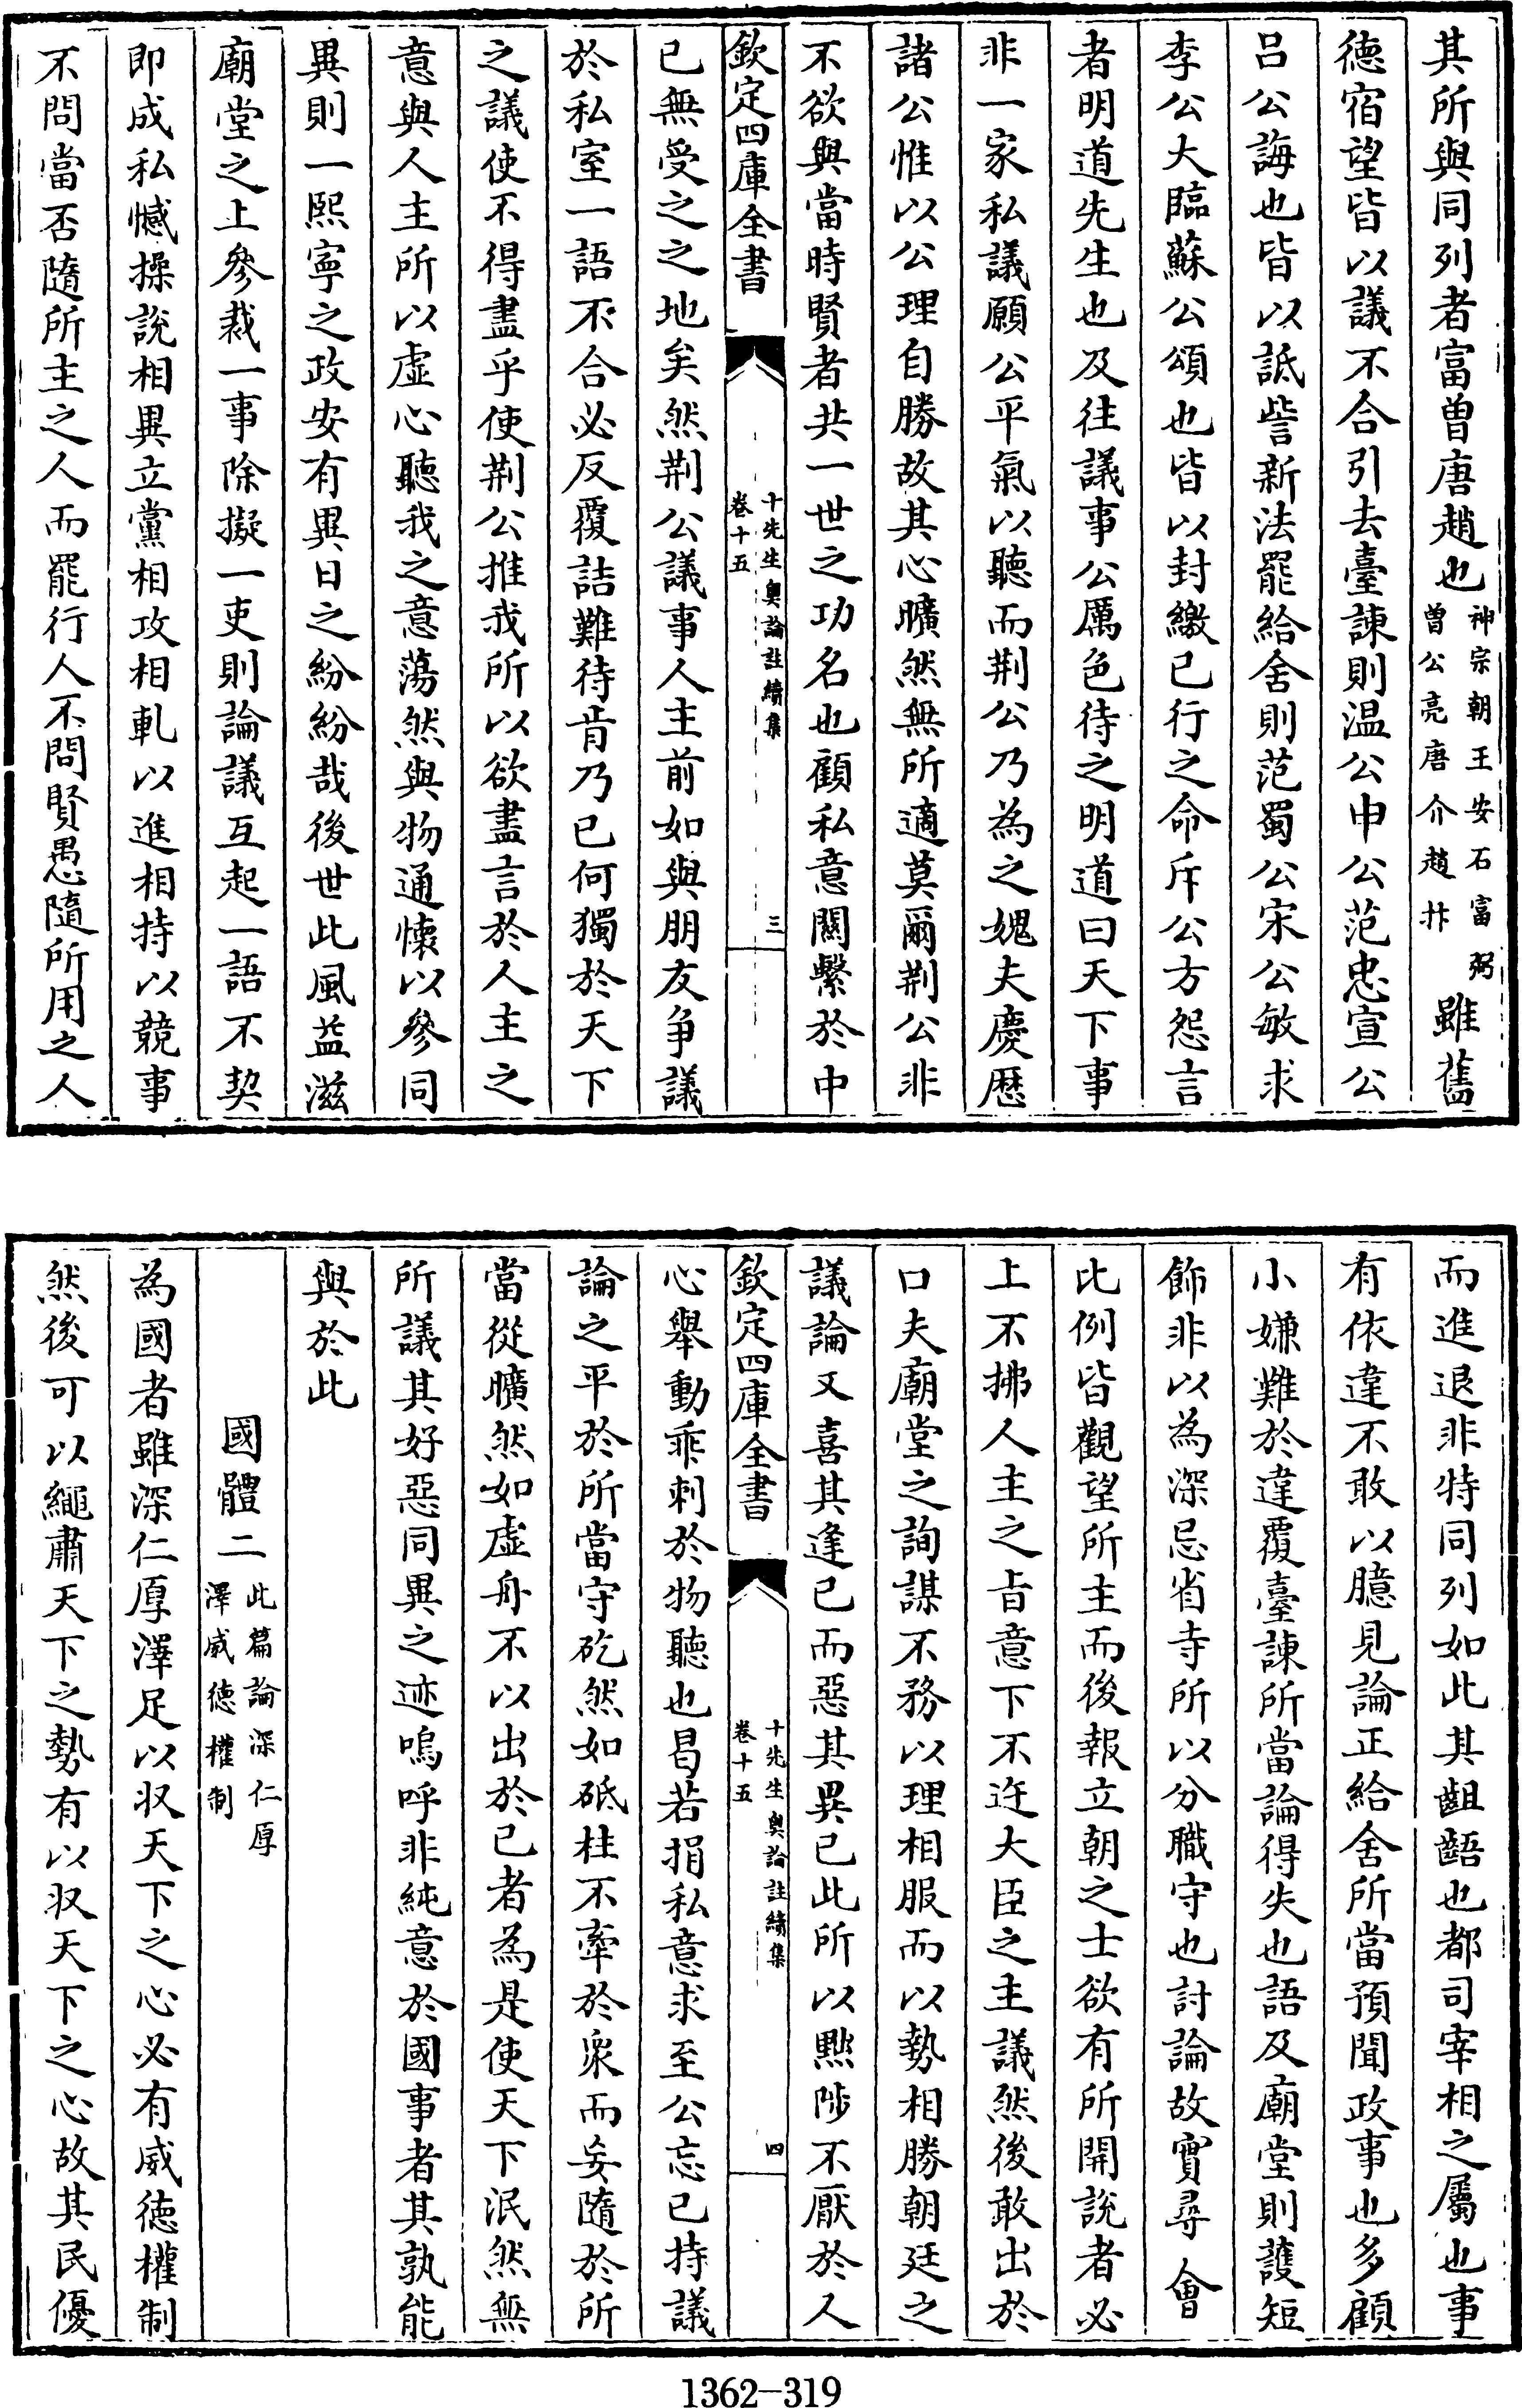 其所與同列者富曾唐趙也神宗朝王安石富弼曾公亮唐介趙抃雖舊
德宿望皆以議不合引去臺諫則温公申公范忠宣公
呂公誨也皆以詆訾新法罷給舍則范蜀公宋公敏求
李公大臨蘇公頌也皆以封繳已行之命斥公方怨言
者明道先生也及往議事公厲色待之明道曰天下事
非一家私議願公平氣以聽而荆公乃為之媿夫慶歴
諸公惟以公理自勝故其心曠然無所適莫爾荆公非
不欲與當時賢者共一世之功名也顧私意關繫於中
欽定四庫全書
十先生奧論註續集
卷十五
三
已無受之之地矣然荆公議事人主前如與朋友争議
於私室一語不合必反覆詰難待肯乃已何獨於天下
之議使不得盡乎使荆公推我所以欲盡言於人主之
意與人主所以虚心聽我之意蕩然與物通懷以參同
異則一熙寧之政安有異日之紛紛哉後世此風益滋
廟堂之上參裁一事除擬一吏則論議互起一語不契
即成私憾操說相異立黨相攻相軋以進相持以競事
不問當否隨所主之人而罷行人不問賢愚隨所用之人
而進退非特同列如此其齟齬也都司宰相之屬也事
有依違不敢以臆見論正給舍所當預聞政事也多顧
小嫌難於違覆臺諫所當論得失也語及廟堂則護短
飾非以為深忌省寺所以分職守也討論故實尋會
比例皆觀望所主而後報立朝之士欲有所開說者必
上不拂人主之㫖意下不迕大臣之主議然後敢出於
口夫廟堂之詢謀不務以理相服而以勢相勝朝廷之
議論又喜其逢已而惡其異已此所以㸃陟不厭於人
欽定四庫全書
十先生奧論註續集
卷十五
四
心舉動乖刺於物聽也曷若捐私意求至公忘已持議
論之平於所當守矻然如砥柱不牽於衆而妄隨於所
當從曠然如虚舟不以出於已者為是使天下泯然無
所議其好惡同異之迹嗚呼非純意於國事者其孰能
與於此
國體二此篇論深仁厚澤威徳權制
為國者雖深仁厚澤足以収天下之心必有威徳權制
然後可以繩肅天下之勢有以収天下之心故其民優
1362-319